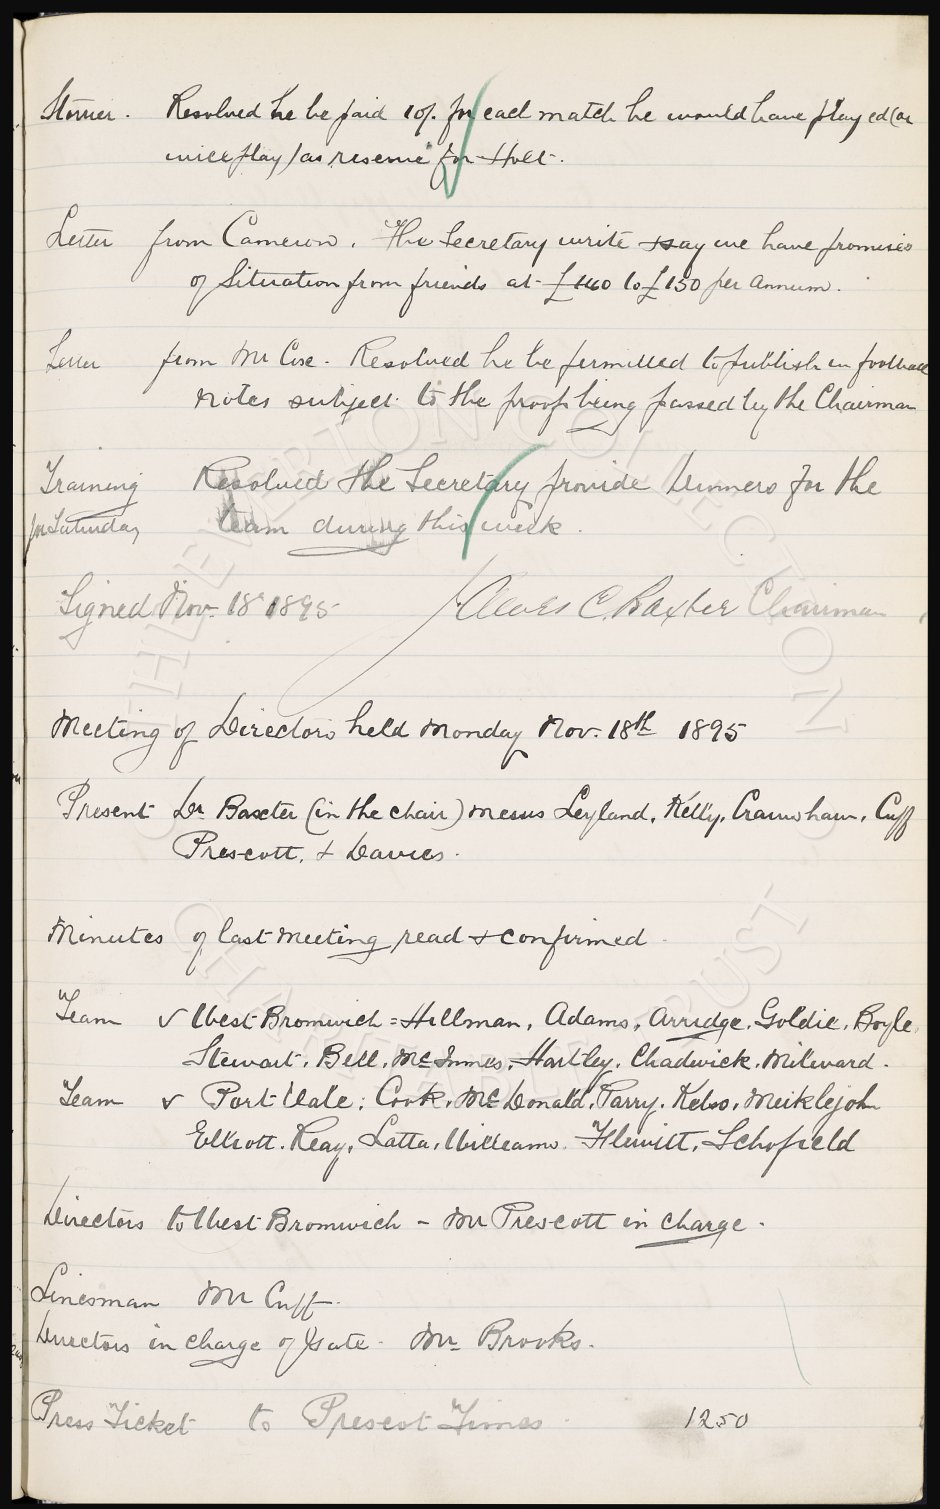 Storrier. Resolved he be paid 10/. for each match he would have played (or
will play) as reserve for Holt.
Letter from Cameron. The Secretary write & say we have promises
of Situation from friends at £140 to £150 per annum.
Letter from Mr Coe. Resolved he be permitted to publish in football
notes subject to the proofs being passed by the Chairman
Training Resolved the Secretary provide dinners for the
for Saturday team during this week.
Signed Nov. 18th 1895 James C. Baxter Chairman
Meeting of Directors held Monday Nov. 18th 1895
Present Dr Baxter (in the chair) Messrs Leyland, Kelly, Crawshaw, Cuff
Prescott, & Davies.
Minutes of last meeting read & confirmed
Team v West Bromwich = Hillman, Adams, Arridge, Goldie, Boyle,
Stewart, Bell, McInnes, Hartley, Chadwick, Milward.
Team v Port Vale; Cook, McDonald, Parry, Kelso, Meiklejohn
Elliott, Reay, Latta, Williams, Flewitt, Schofield
Directors to West Bromwich - Mr Prescott in charge.
Linesman Mr Cuff.
Directors in charge of Gate. Mr Brooks.
Press Ticket to Prescot Times. 1250
THE EVERTON COLLECTION
CHARITABLE TRUST